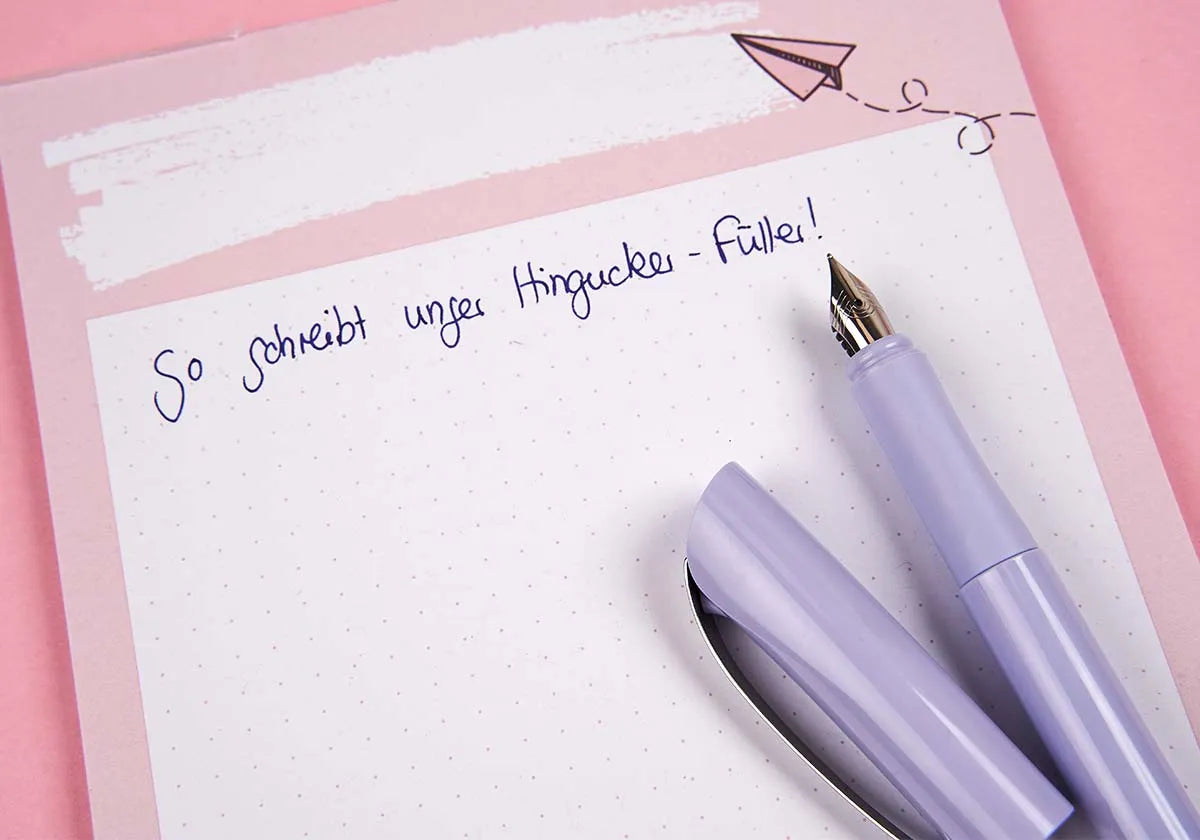 So schreibt unser Hingucker-Füller!